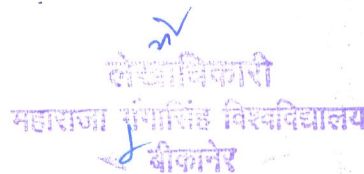 लेखाधिकारी
महाराजा गंगासिंह विश्वविद्यालय
बीकानेर